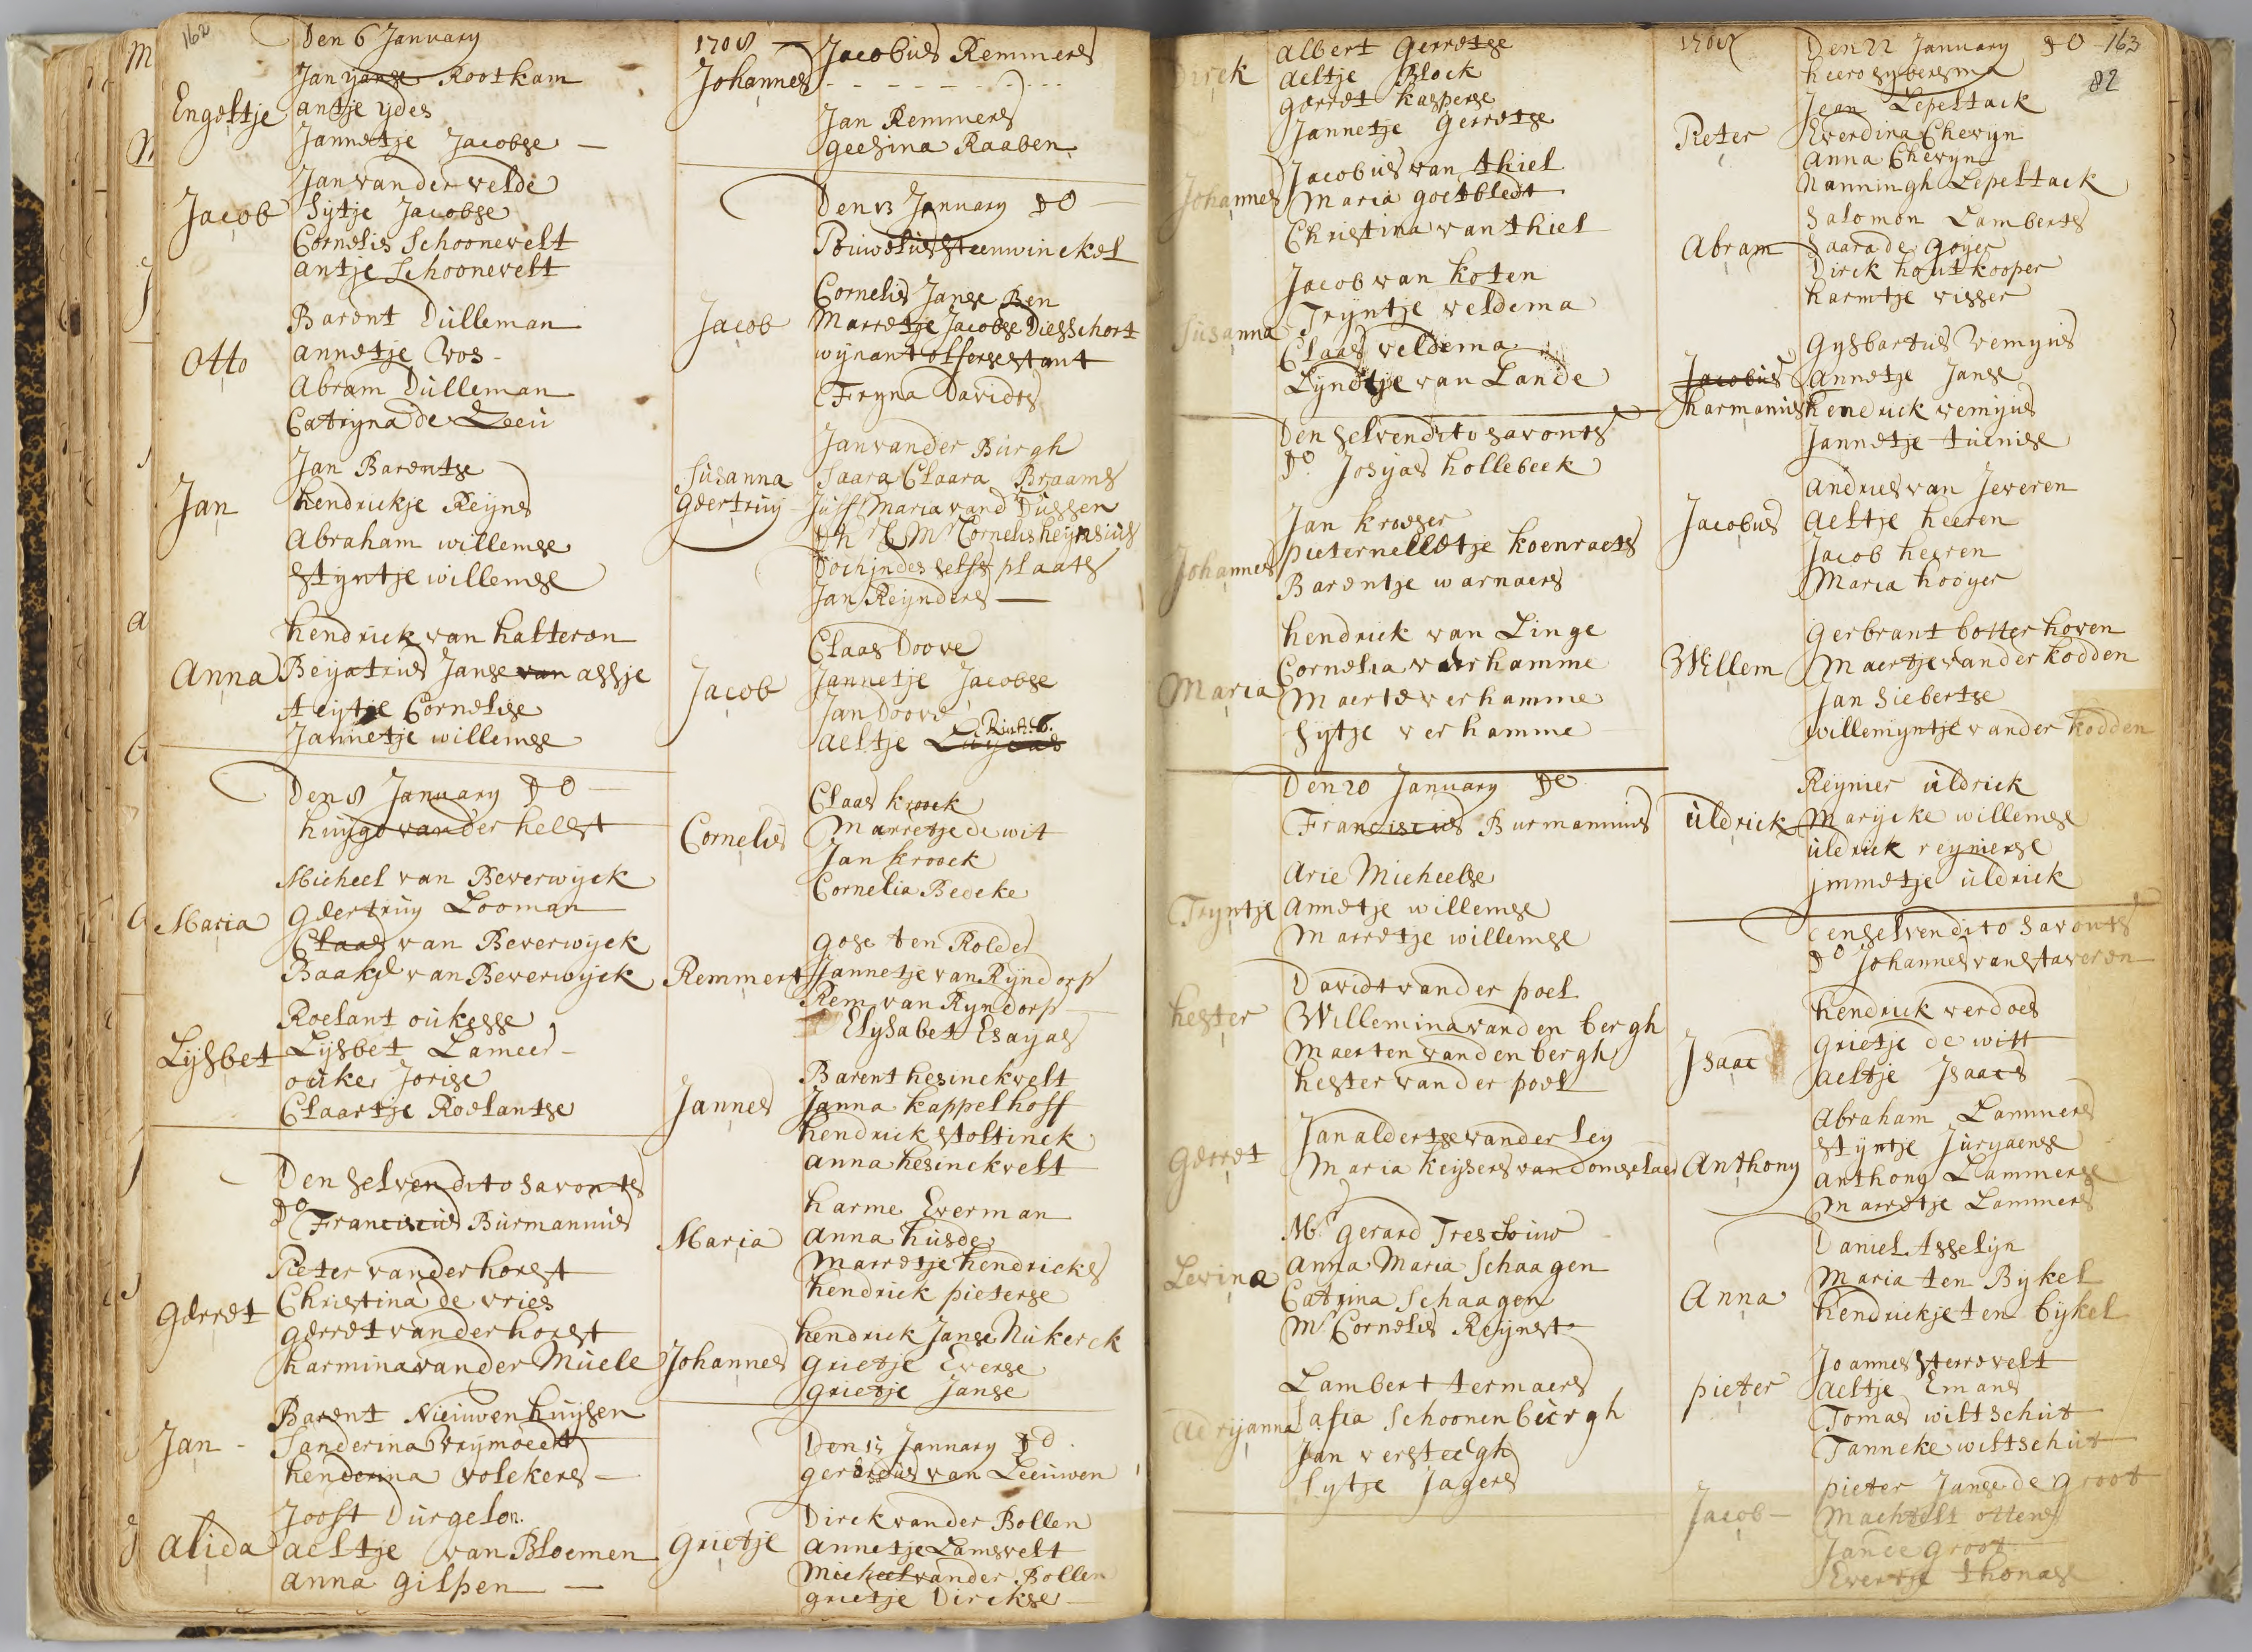 162
Den 6 January
Jan Janse Rootham
Engeltje antje ydes
Jannetje Jacobse
Jan vander velde
Jacob Sytje Jacobse
Cornelis Schoonevelt
antje Schoonevelt
Barent Dulleman
Otto annetje Vos
Abram Dulleman
Catryna de Leeu
Jan Barentse
Jan hendrickje Reyns
Abraham willemse
Styntje willemse
hendrick van halteren
Anna Beyatris Janse van assje
Cornelise
Jannetje willemse
Den 8 January Do
huygo vander helst
Micheel van Beverwyck
Maria Geertruy Looman
Claas van Beverwyck
Baakje van Beverwyck
Roelant oukesse
Lysbet Lysbet Lameer
ouke Jorise
Claartje Roelantse
Den selven dito savonts
Do Franciscus Burmannus
Pieter vander horst
Gerret Christina de vries
gerret vander horst
harmina vander Muele
Barent Nieuwenhuysen
Jan Sanderina vrymoedt
henderina volckers
Joost Durgelon
alida aeltje van Bloemen
anna gilpen
1708
Jacobus Remmers
Johannes - - - - - - - -
Jan Remmers
geesina Raaben
Den 13 January Do
Pouwelus Steenwinckel
Cornelis Janse Ben
Jacob Marretje Jacobse Diesschort
wynant olferse stant
Fryna Davidts
Jan vander Burgh
Susanna Saara Claara Braams
Geertruy Juff Maria vand Dussen
Mr Cornelis heynsius
Doch in des selfs plaats
Jan Reynders
Claas Doove
Jacob Jannetje Jacobse
Jan Doove
aeltje
Claas kroock
Cornelis Marretje de wit
Jan kroock
Cornelia Bedeke
gose ten Rolder
Remmert Jannetje van Ryndorp
Rem van Ryndorp
Elysabet Esayas
Barent hesinckvelt
Jannes Janna kappelhoff
hendrick Stoltinck
anna hesinckvelt
harme Everman
Maria anna husde
Marretje hendricks
hendrick pieterse
hendrick Janse Nukerck
Johannes grietje Everse
grietje Janse
Den 15 January Do
gerardus van Leeuwen
Dirck vander Bollen
grietje annetje Lamsvelt
Micheel vander Bollen
grietje Dirckse
albert gerretse
Dirck aeltje Block
gerret kasperse
Jannetje gerretse
Jacobus van thiel
Johannes Maria goetbledt
Christina van thiel
Jacob van koten
Susanna Tryntje veldema
Claas veldema
Lyndtje van Lande
Den selven dito savonts
Do Josyas hollebeek
Jan kroeser
Johannes pieternelletje koenraets
Barentje warnaers
hendrick van Linge
Cornelia verhamme
Maria Maerte verhamme
Sytje verhamme
Den 20 January Do
Franciscus Burmannus
Arie Micheelse
Tryntje annetje willemse
Marretje willemse
Davidt vander poel
hester Willemina vanden bergh
Maerten vanden bergh
hester vander poel
Jan aldertse vander ley
gerret Maria keysers van domselaer
Mr gerard Treslouw
Levina Anna Maria Schaagen
Catrina Schaagen
Mr Cornelis Reynst
Lambert termaers
adryanna Safia Schoonenburgh
Jan versteegh
Sytje Jagers
1708
Den 22 January Do 163
82
heero sybersma
Jean Lepeltack
Pieter Everdina Chevyn
anna Chevyn
Nanningh Lepeltack
Salomon Lamberts
Abram Saara de goyer
Dirck houtkooper
harmtje visser
gysbartus remyus
Jacobus annetje Janse
harmanus hendrick remyus
Jannetje tunise
andries van Jeveren
Jacobus aeltje heeren
Jacob heeren
Maria hooyer
gerbrant botterkoven
Willem Maertje vander kodden
Jan Siebertse
willemyntje vander kodden
Reynier uldrick
uldrick Marycke willemse
uldrick reynierse
jmmetje uldrick
Den selven dito savonts
Do Johannes van staveren
hendrick verdoes
Isaac grietje de witt
aeltje Isaacs
Abraham Lammers
styntje Juryaense
Anthony anthony Lammerse
Marretje Lammers
Daniel Asselyn
Anna Maria ten Bykel
hendrickje ten bykel
Joannes sterrevelt
pieter aeltje Emans
Tomas wiltschut
Tanneke wiltschut
pieter Janse de groot
Jacob Machtelt ottens
Jan de groot
Evertje thonase